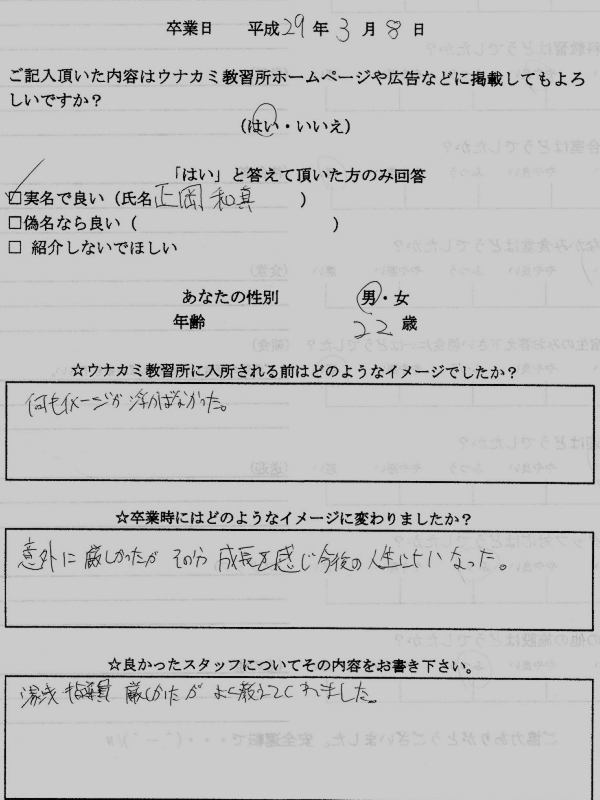 卒業日 平成29年3月8日
ご記入頂いた内容はウナカミ教習所ホームページや広告などに掲載してもよろ
しいですか？
(はい・いいえ)
「はい」と答えて頂いた方のみ回答
□実名で良い（氏名 正岡 和真 ）
□偽名なら良い（ ）
□ 紹介しないでほしい
あなたの性別 男・女
年齢 22 歳
☆ウナカミ教習所に入所される前はどのようなイメージでしたか？
何もイメージが浮かばなかった。
☆卒業時にはどのようなイメージに変わりましたか？
意外に厳しかったが その分 成長を感じ今後の人生に なった。
☆良かったスタッフについてその内容をお書き下さい。
湯浅 指導員 厳しかったが よく教えてくれました。